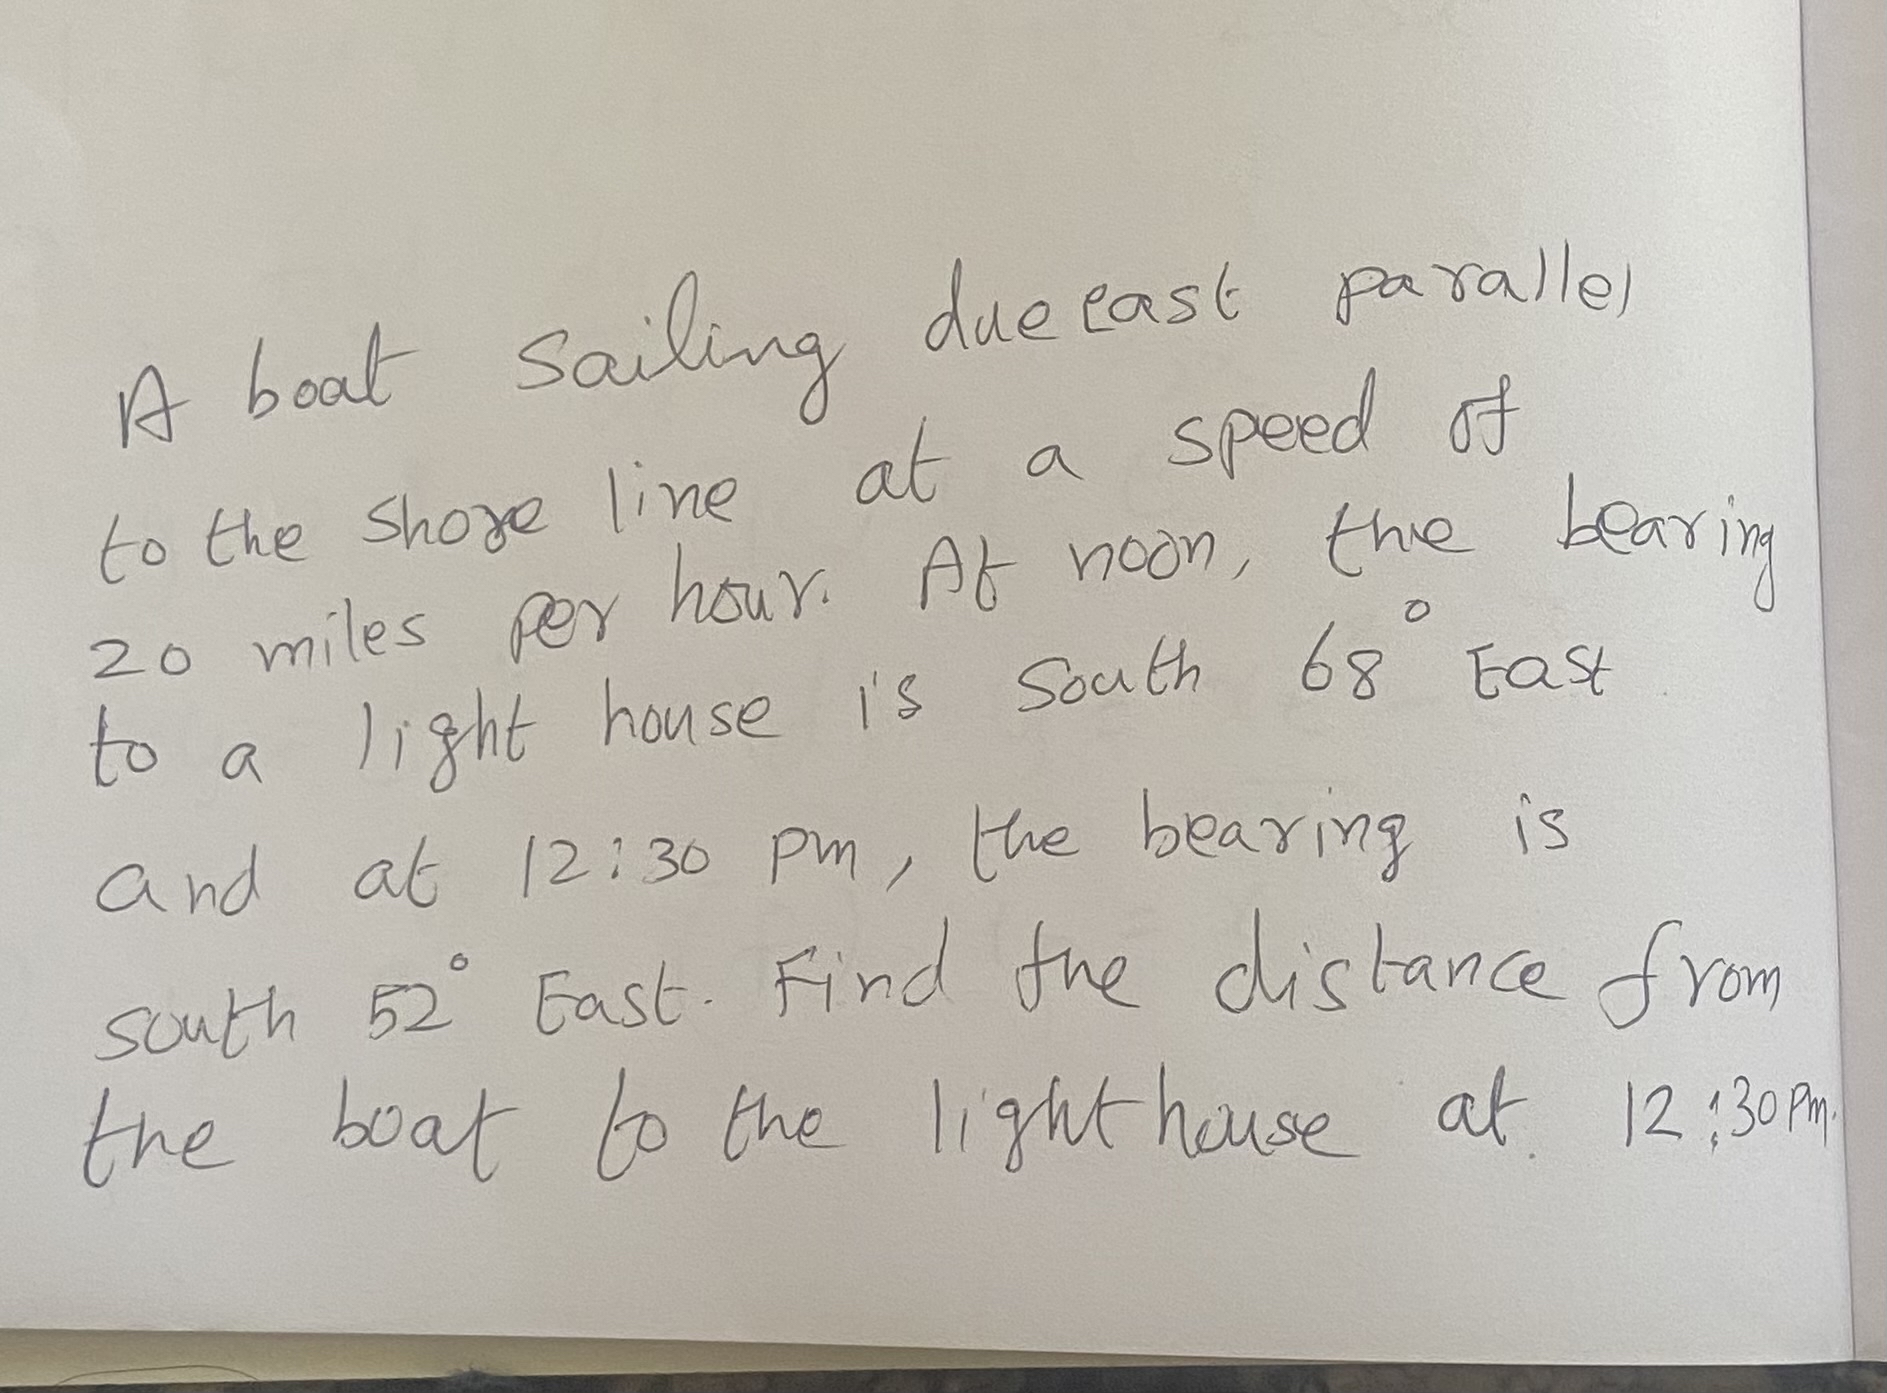 A boat sailing due east parallel
to the shore line at a speed of
20 miles per hour. At noon, the bearing
to a light house is South 68° East
and at 12:30 pm, the bearing is
south 52° East. Find the distance from
the boat to the light house at 12:30 pm.